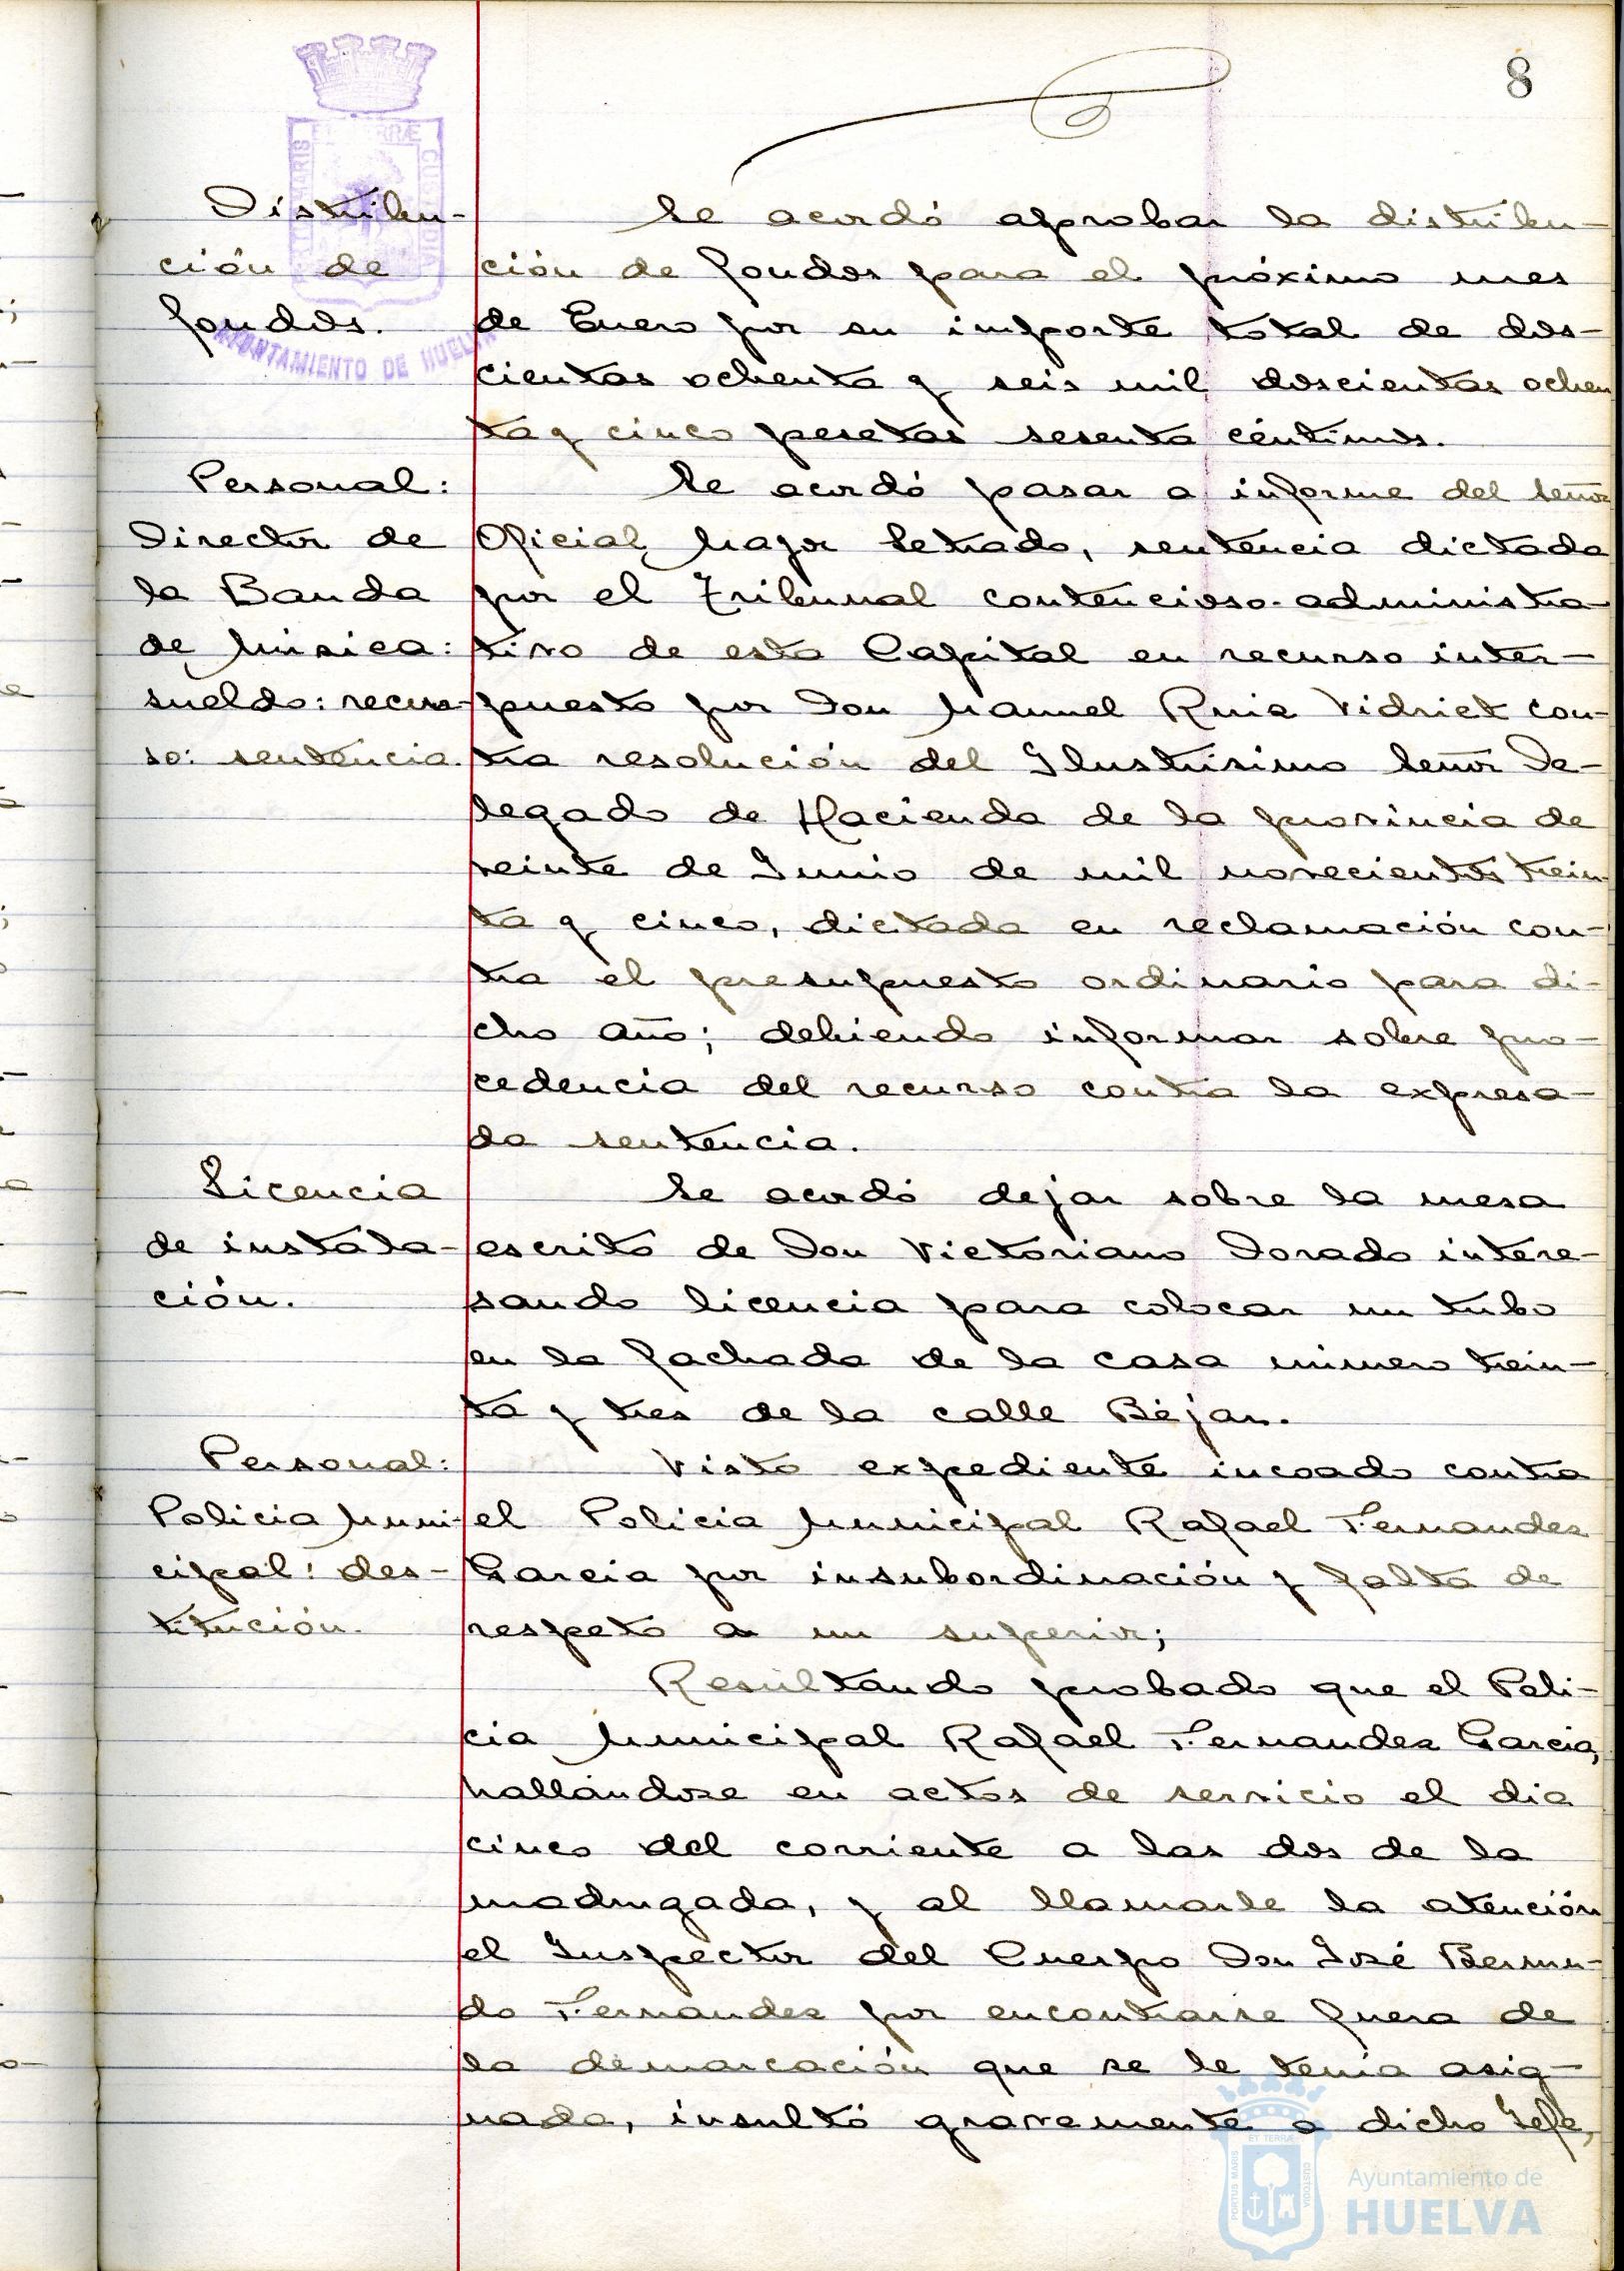 8
Distribu-
ción de
fondos.
Se acordó aprobar la distribu-
ción de fondos para el próximo mes
de Enero por su importe total de dos-
cientas ochenta y seis mil doscientas ochen
ta y cinco pesetas sesenta céntimos.
Personal:
Director de
la Banda
de Música:
sueldo: recur-
so: sentencia.
Se acordó pasar a informe del Señor
Oficial Mayor Letrado, sentencia dictada
por el Tribunal contencioso-administra-
tivo de esta Capital en recurso inter-
puesto por Don Manuel Ruiz Vidriet con-
tra resolución del Ilustrísimo Señor De-
legado de Hacienda de la provincia de
veinte de Junio de mil novecientos trein-
ta y cinco, dictada en reclamación con-
tra el presupuesto ordinario para di-
cho año; debiendo informar sobre pro-
cedencia del recurso contra la expresa-
da sentencia.
Licencia
de instala-
ción.
Se acordó dejar sobre la mesa
escrito de Don Victoriano Dorado intere-
sando licencia para colocar un tubo
en la fachada de la casa número trein-
ta y tres de la calle Béjar.
Personal:
Policia Muni-
cipal: des-
titución.
Visto expediente incoado contra
el Policia Municipal Rafael Fernandez
Garcia por insubordinación y falta de
respeto a un superior;
Resultando probado que el Poli-
cia Municipal Rafael Fernandez Garcia,
hallándose en actos de servicio el dia
cinco del corriente a las dos de la
madrugada, y al llamarle la atención
el Inspector del Cuerpo Don José Bermu-
do Fernandez por encontrarse fuera de
la demarcación que se le tenía asig-
nada, insultó gravemente a dicho Jefe,
AYUNTAMIENTO DE HUELVA
PORTUS MARIS ET TERRÆ CUSTODIA
Ayuntamiento de
HUELVA